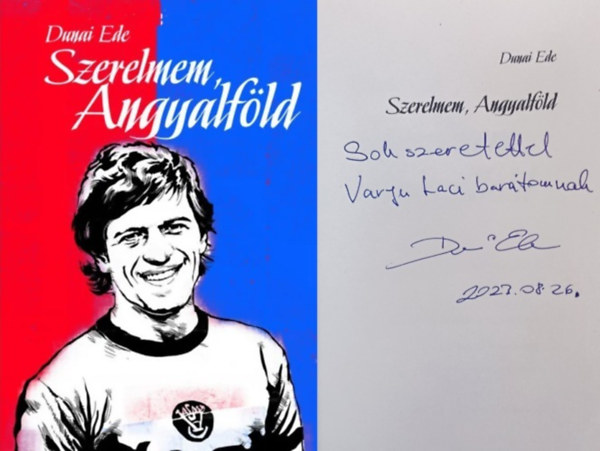 Dunai Ede
Szerelmem,
Angyalföld
Vasas
Dunai Ede
Szerelmem, Angyalföld
Sok szeretettel
Varga Laci barátomnak
2023.08.26.